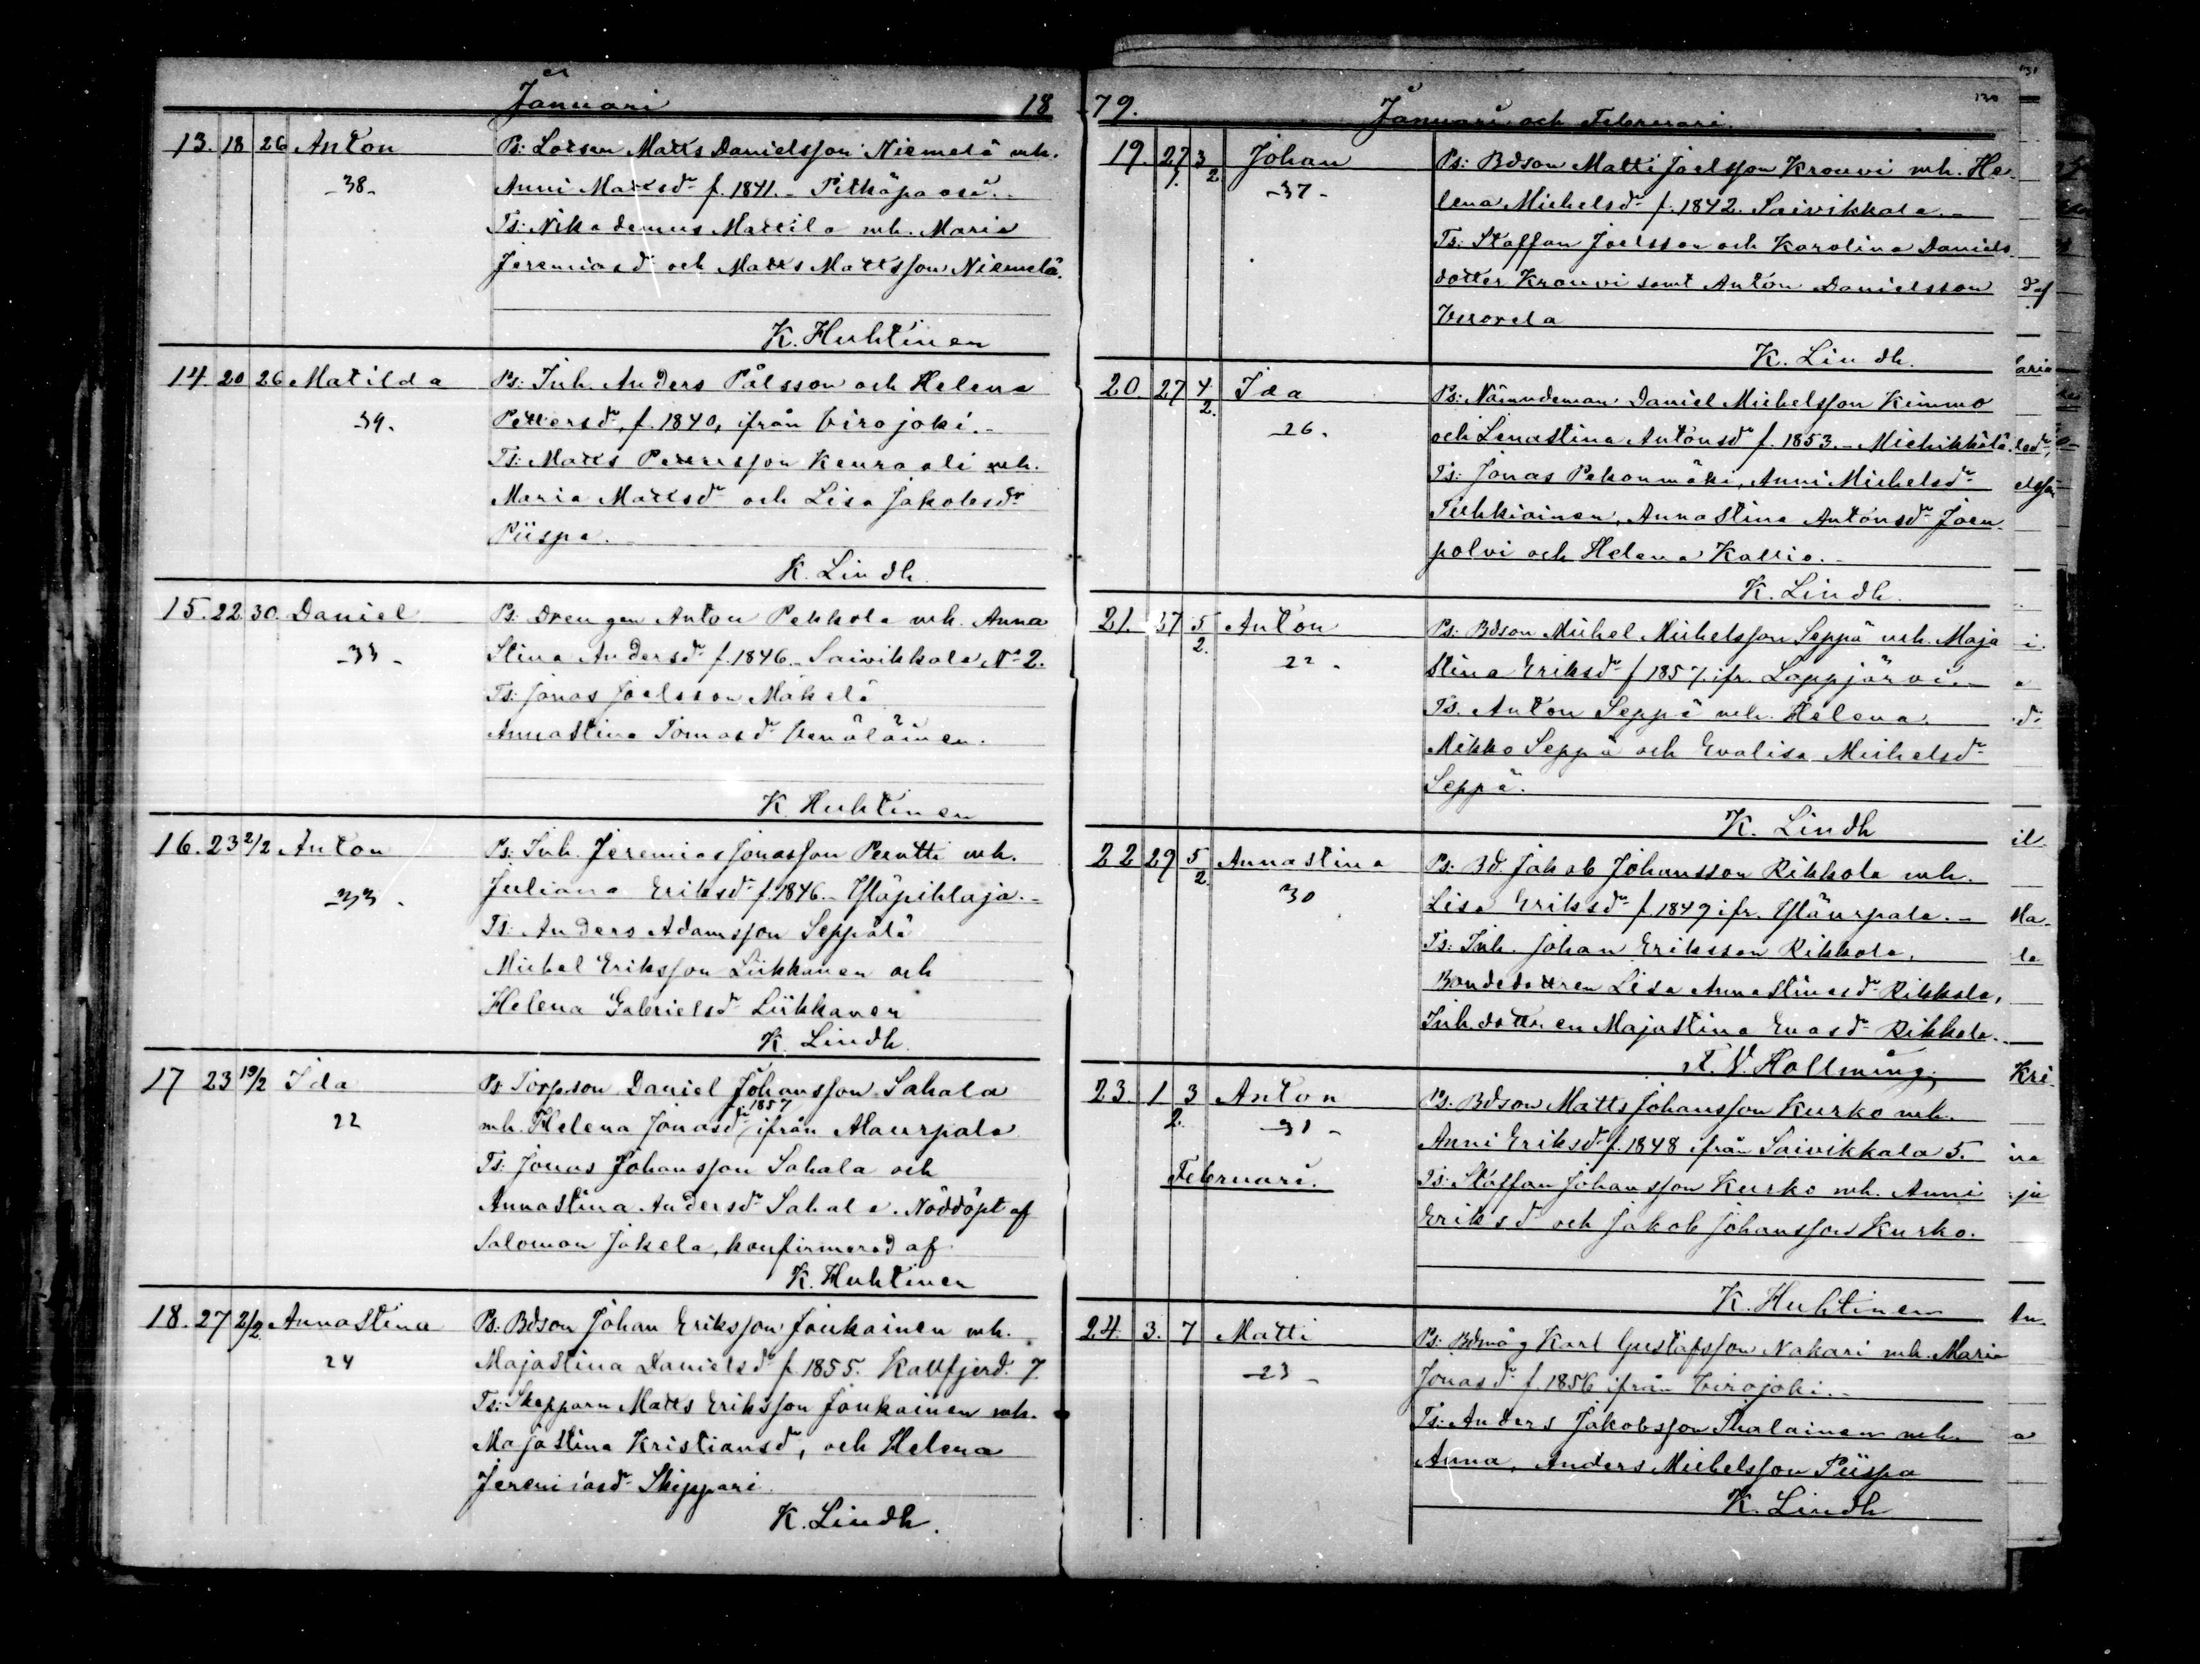 Januari 18
13. 18 26 Anton Ps: Lotsen Matts Danielsson Niemelä mh.
-38- Anni Mattsdr f. 1841. - Pitkäpaasi. -
Ts: Nikodemus Mattila mh. Maria
Jeremiasdr och Matts Mattsson Niemelä.
K. Huhtinen
14. 20 26 Matilda Ps: Inh. Anders Pålsson och Helena
-39. Pettersdr, f. 1840, ifrån Virojoki. -
Ts: Matts Pettersson Keuraali mh.
Maria Mattsdr och Lisa Jakobsdr
Piispa. -
K. Lindh.
15. 22 30. Daniel Ps: Drengen Anton Pekkola mh. Anna
-33- Stina Andersdr f. 1846. - Saivikkala No 2.
Ts: Jonas Joelsson Mäkelä
Annastina Tomasdr Venäläinen.
K. Huhtinen
16. 23 2/2 Anton Ps: Inh. Jeremias Jonasson Perätti mh.
-33-. Juliana Eriksdr f. 1846. - Yläpihlaja. -
Ts: Anders Adamsson Seppälä
Michel Eriksson Liikkanen och
Helena Gabrielsdr Liikkanen
K. Lindh.
17 23 19/2 Ida Ps Torpson Daniel Johansson Sahala
f. 1857
22 mh. Helena Jonasdr, ifrån Alaurpala
Ts: Jonas Johansson Sahala och
Annastina Andersdr Sahala. Nöddöpt af
Salomon Jakela, konfirmerad af
K. Huhtinen
18. 27 2/2. Annastina Ps. Bdson Johan Eriksson Joukainen mh.
24 Majastina Danielsdr f. 1855. Kallfjerd. 7.
Ts: Skepparn Matts Eriksson Joukainen mh.
Majastina Kristiansdr, och Helena
Jeremiasdr Skippari
K. Lindh.
79. Januari och Februari. 130
19. 27/1. 3/2. Johan Ps: Bdson Matti Joelsson Krouvi mh. He-
-37- lena Michelsdr f. 1842. Saivikkala. -
Ts: Staffan Joelsson och Karolina Daniels
dotter Krouvi samt Anton Danielsson
Vuorela
K. Lindh.
20. 27 4/2. Ida Ps: Nämndeman Daniel Michelsson Kimmo
-26. och Lenastina Antonsdr f. 1853. - Miehikkälä.
Ts: Jonas Pekonmäki, Anni Michelsdr
Tuhkiainen, Annastina Antonsdr Joen-
polvi och Helena Kallio. -
K. Lindh.
21. 27 5/2. Anton Ps: Bdson Michel Michelsson Seppä mh. Maja
22. stina Eriksdr f 1857. ifr. Lappjärvi. -
Ts. Anton Seppä mh. Helena.
Mikko Seppä och Evalisa Michelsdr
Seppä.
K. Lindh
22 29 5/2. Annastina Ps: Bd. Jakob Johansson Rikkola mh.
30 Lisa Eriksdr f. 1849 ifr. Yläurpala. -
Ts: Inh. Johan Eriksson Rikkola.
Bondedottren Lisa Annastinasdr Rikkola,
Inh dottren Majastina Evasdr Rikkola.
A. V. Hollming,
23. 1/2. 3 Anton Ps. Bdson Matts Johansson Kurko mh.
-31- Anni Eriksdr f. 1848 ifrån Saivikkala 5.
Februari. Ts: Staffan Johansson Kurko mh. Anni
Eriksdr och Jakob Johansson Kurko.
K. Huhtinen
24. 3. 7 Matti Ps: Bdmåg Karl Gustafsson Nakari mh. Maria
-23- Jonasdr f. 1856 ifrån Virojoki. -
Ts: Anders Jakobsson Sualainen mh.
Anna, Anders Michelsson Piispa
K. Lindh